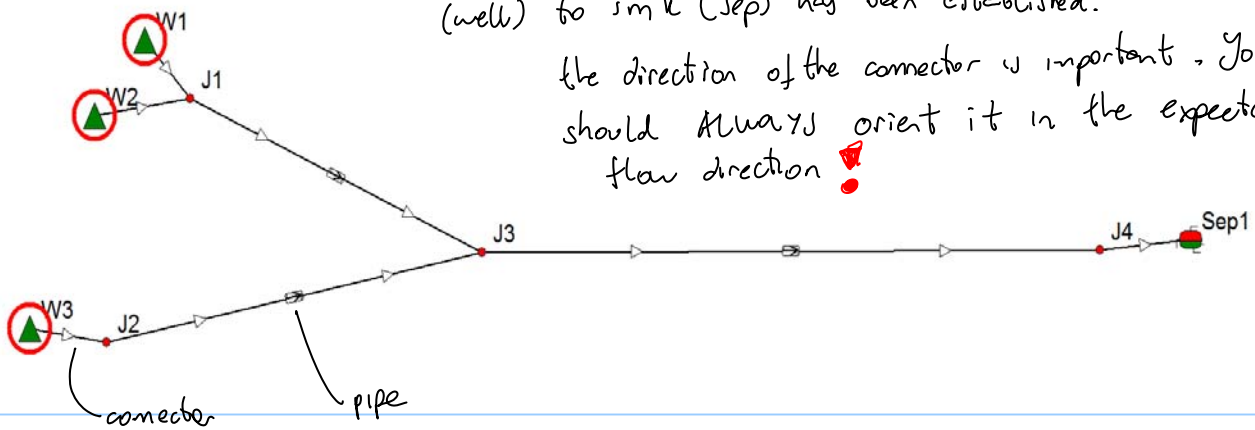 (well) to sink (sep) has been established.
the direction of the connector is important. Yo
should ALWAYS orient it in the expecte
flow direction !
W1
J1
W2
J3
J4
Sep1
W3
J2
conector
pipe